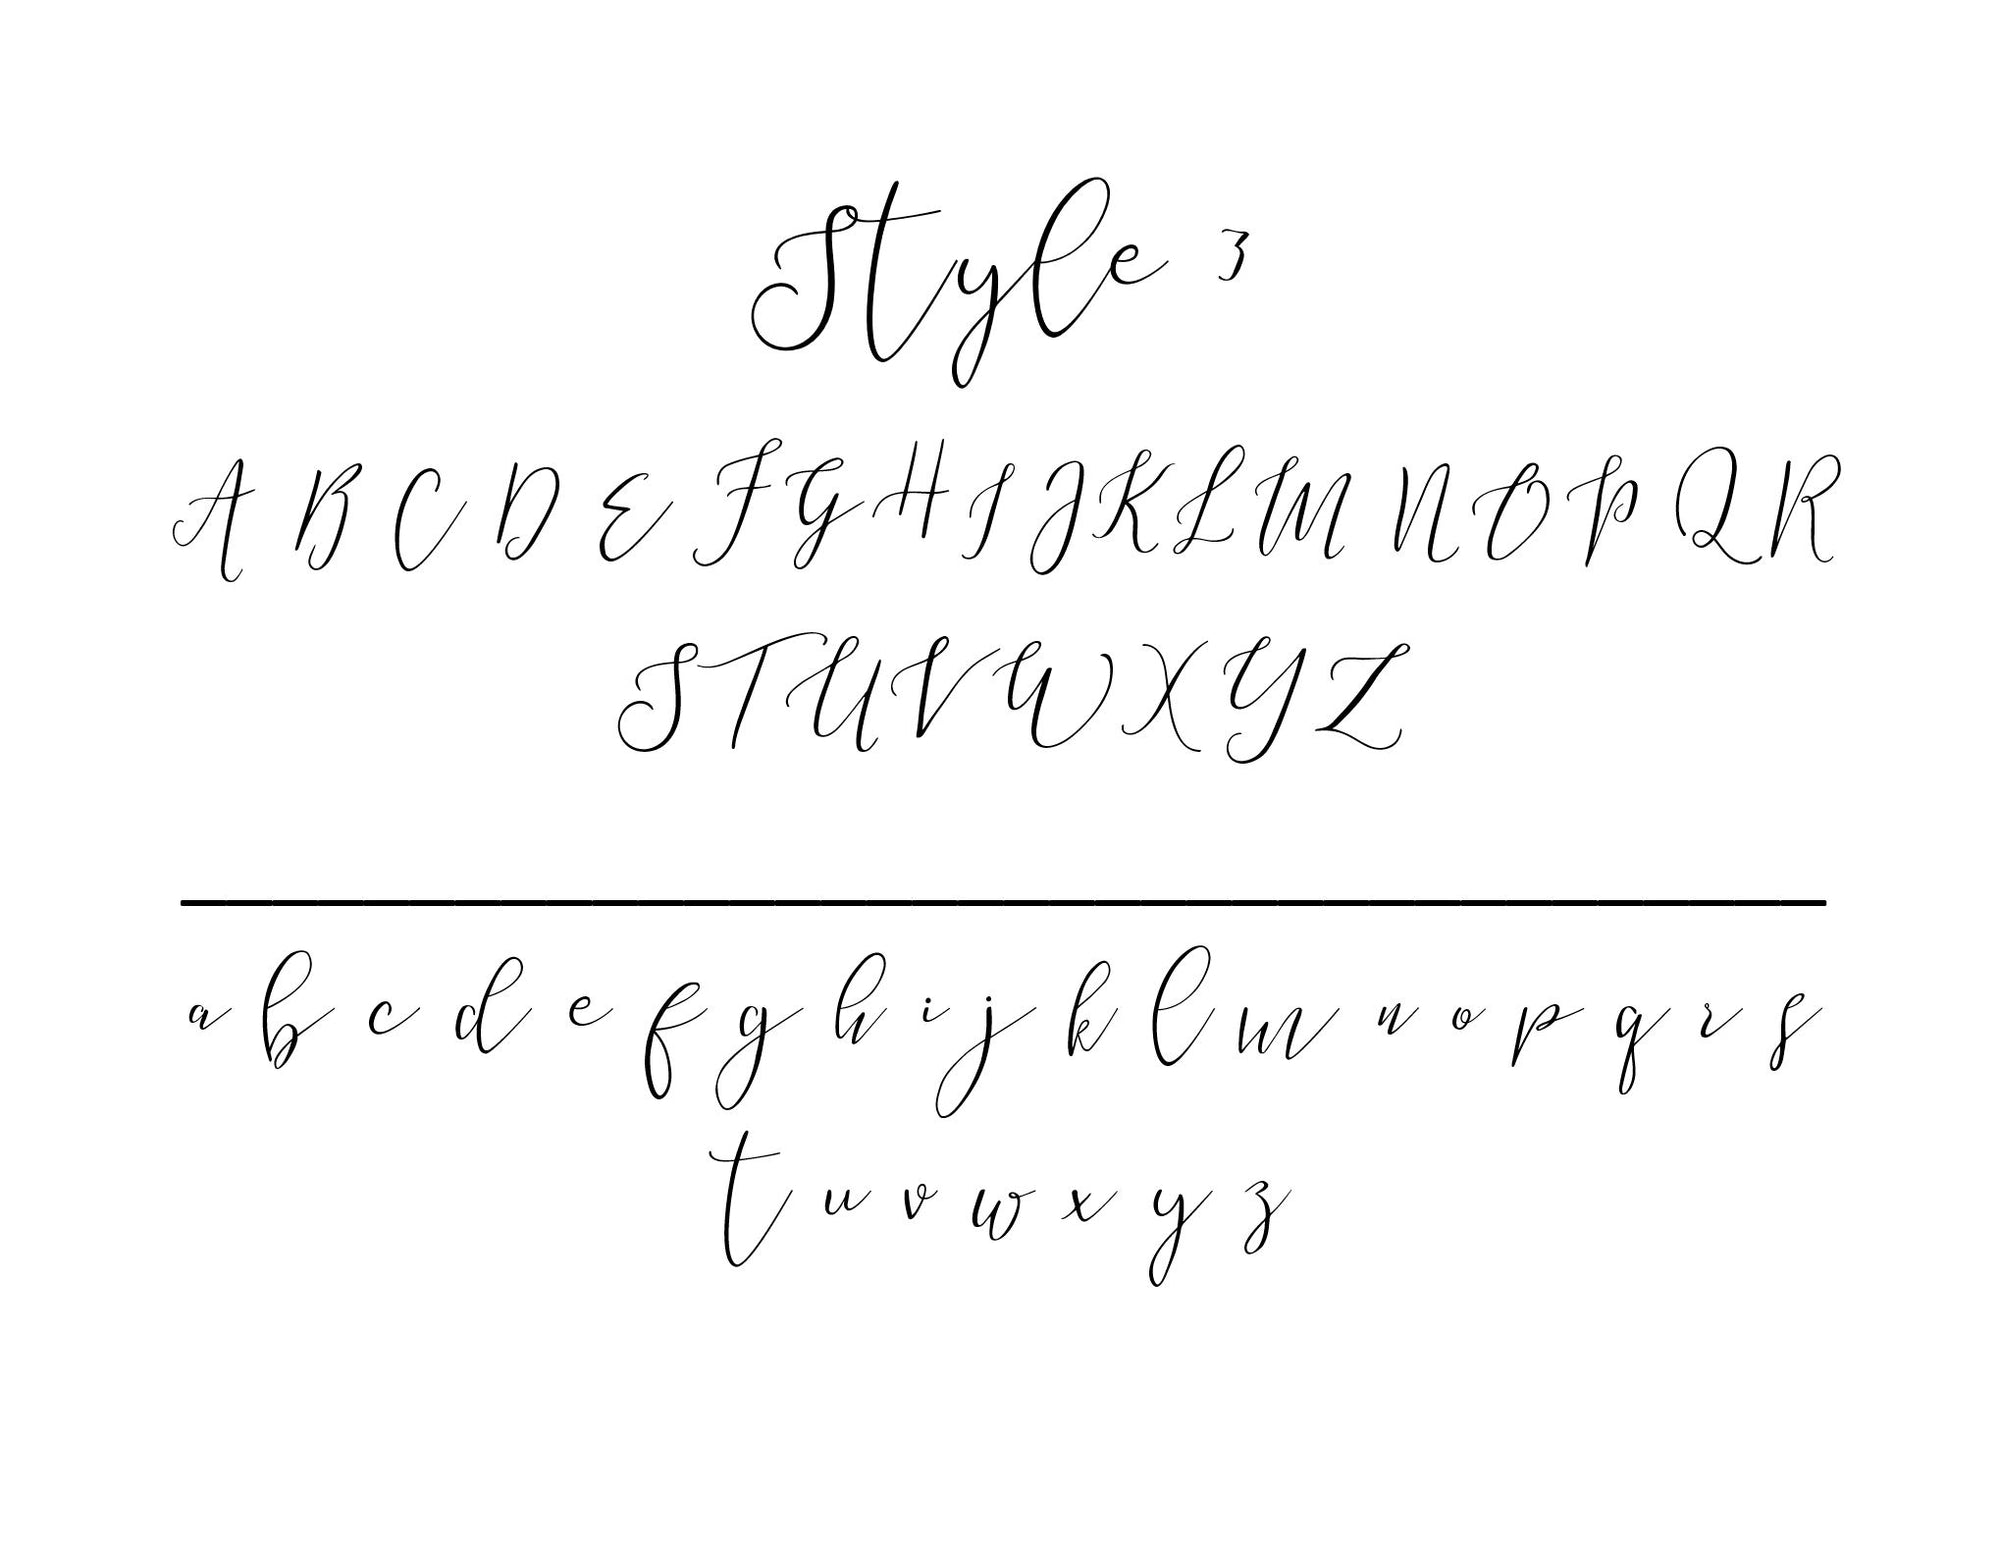 Style 3
A B C D E F G H I J K L M N O P Q R
S T U V W X Y Z
a b c d e f g h i j k l m n o p q r s
t u v w x y z